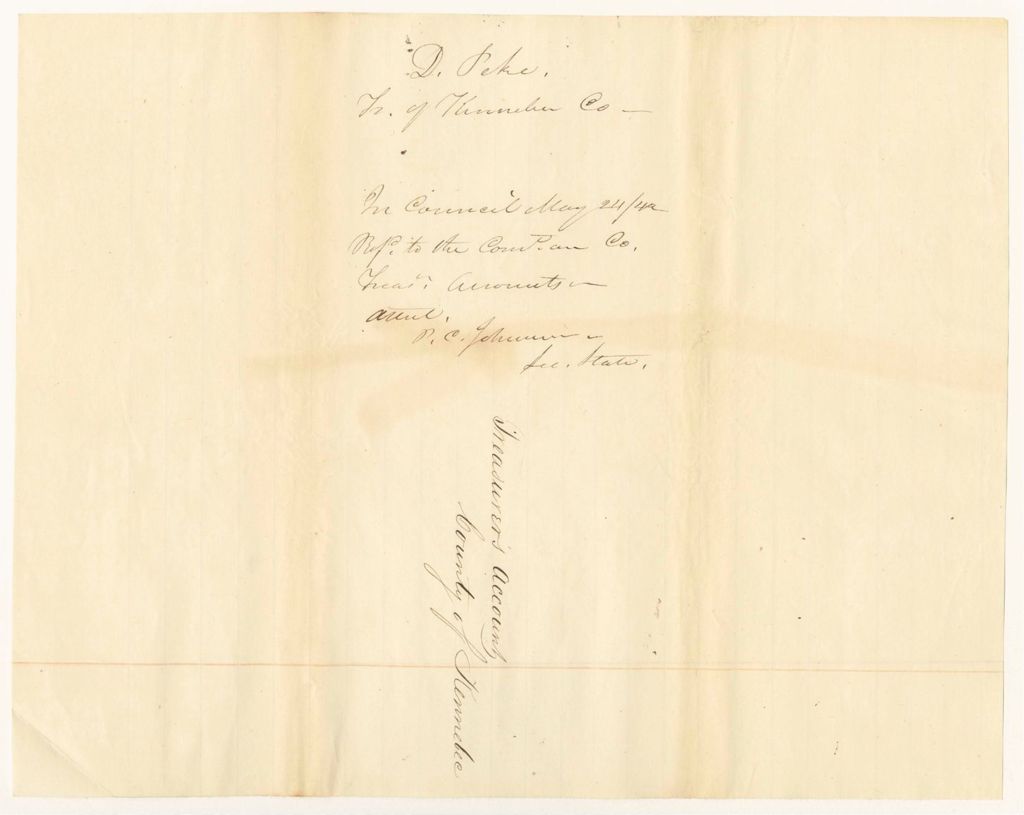 D. Pike.
Tr. of Kennebec Co —
In Council May 24/42
Ref. to the Com. on Co.
Treas. Accounts —
Attest.
P. C. Johnson —
Sec. State.
Treasurer's Account
County of Kennebec